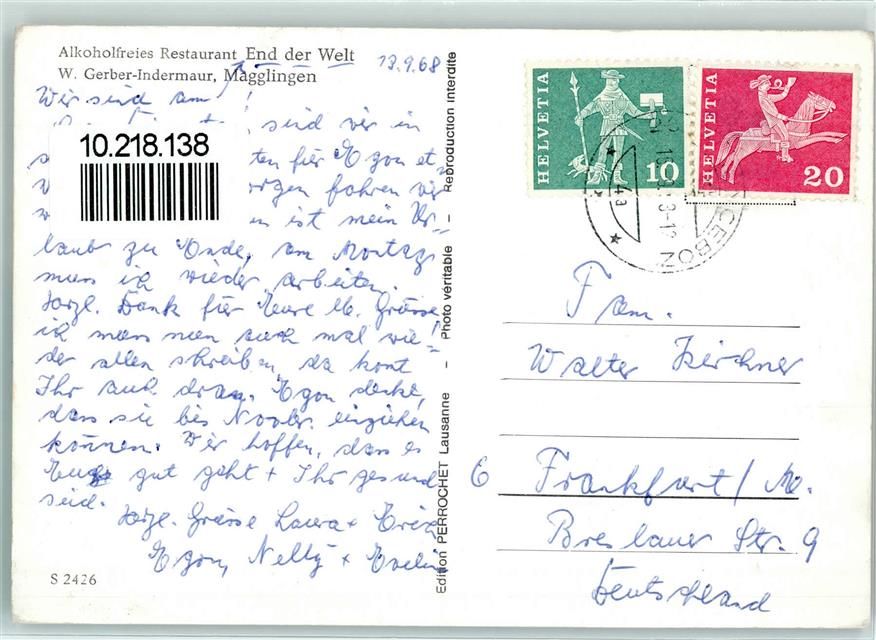 Alkoholfreies Restaurant End der Welt
W. Gerber-Indermaur, Magglingen
13.9.68
Wir sind am !
sind wir in
10.218.138
ten für Egon et
orgen fahren wir
n ist mein Ur-
laub zu Ende, am Montag
muss ich wieder arbeiten.
Herzl. Dank für Eure lb. Grüsse,
ich muss nun auch mal wie-
der allen schreiben, da kont
Ihr auch dran. Egon denkt,
dass sie bis Novbr. einziehen
können. Wir hoffen, dass es
Euch gut geht + Ihr gesund
seid.
Herzl. Grüsse Laura + Erich
Egon, Nelly + Evelin
S 2426
Edition PERROCHET Lausanne – Photo véritable – Reproduction interdite
HELVETIA
10
HELVETIA
20
Fam.
Walter Kirchner
6 Frankfurt / M.
Breslauer Str. 9
Deutschland